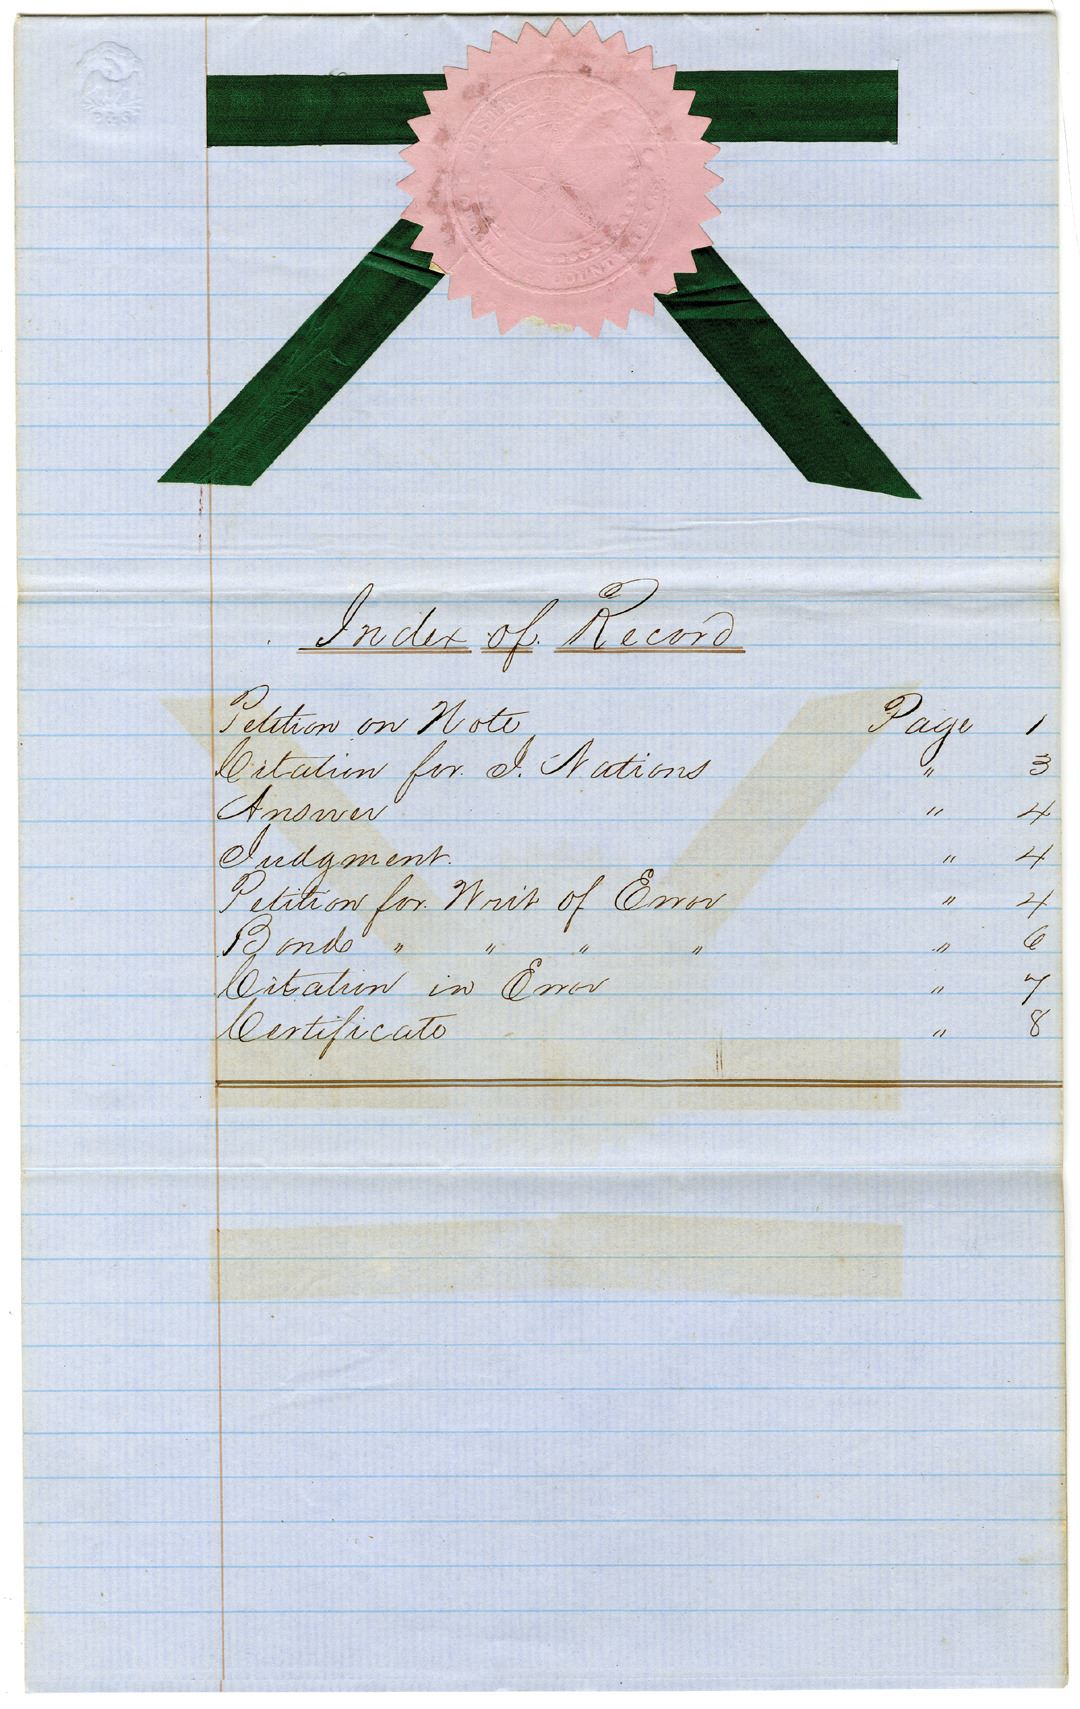 Index of Record
Petition on Note Page 1
Citation for I. Nations " 3
Answer " 4
Judgment. " 4
Petition for Writ of Error " 4
Bonds " " " " " 6
Citation in Error " 7
Certificate " 8